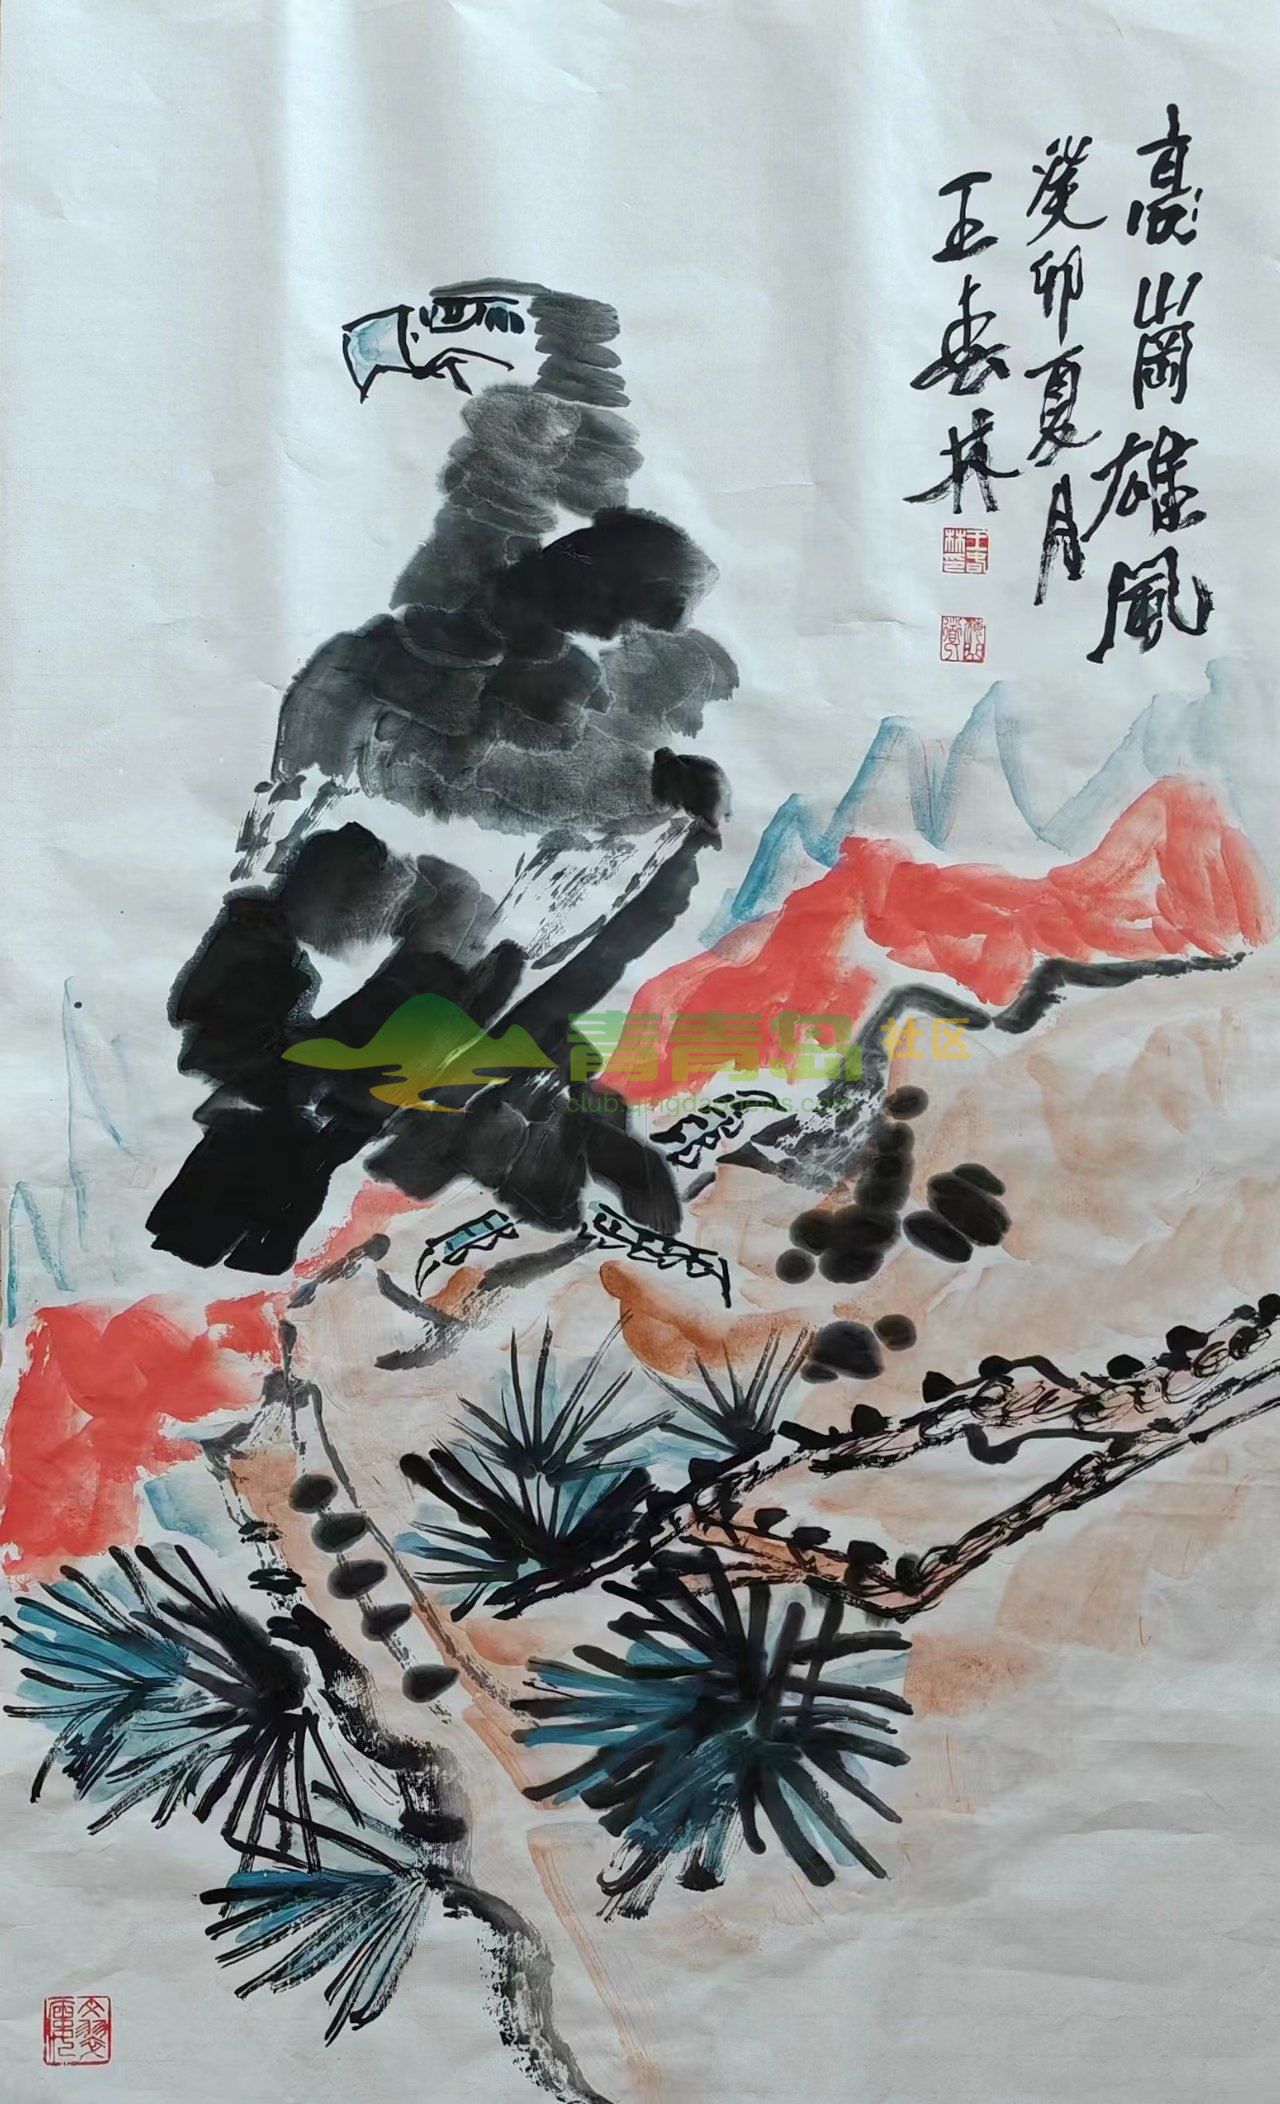 高崗雄風
癸卯夏月
王春林
青青岛社区
club.qingdaonews.com